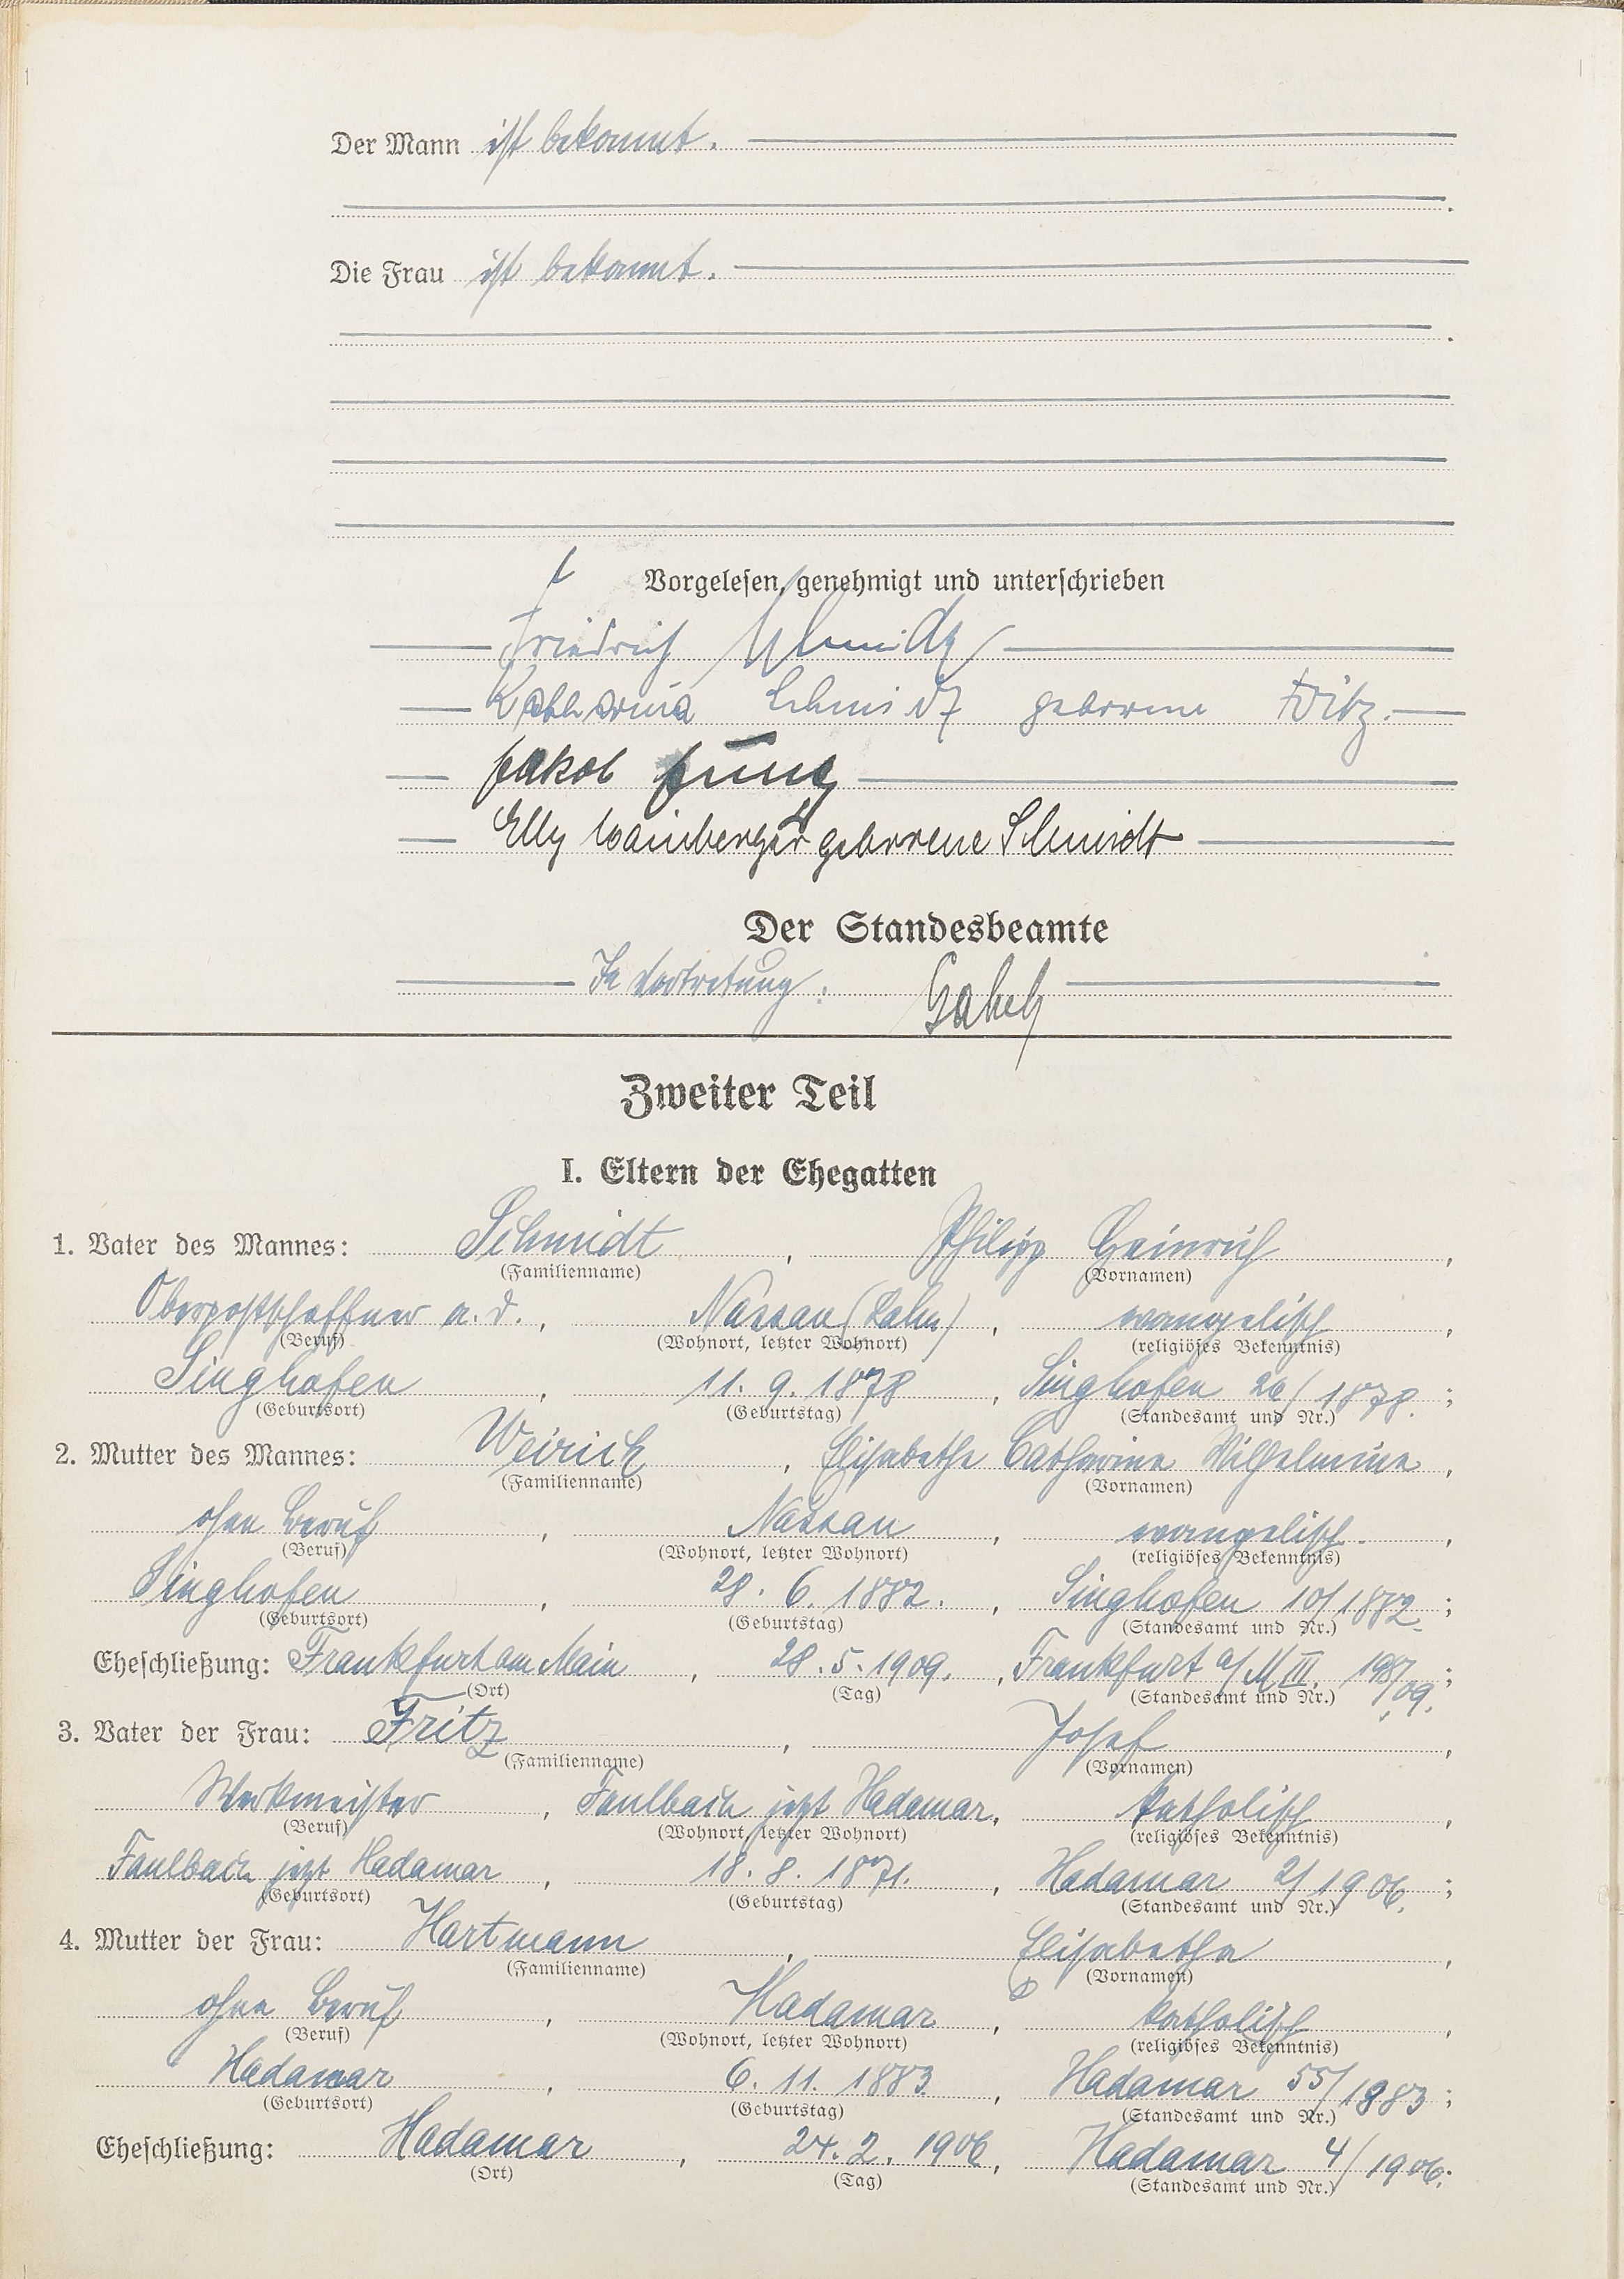 Der Mann ist bekannt.
Die Frau ist bekannt.
Vorgelesen, genehmigt und unterschrieben
Friedrich Schmidt
Katharina Schmidt geborene Fritz.
Jakob Jung
Elly Wainberger geborene Schmidt
Der Standesbeamte
In Vertretung: Gabel
Zweiter Teil
I. Eltern der Ehegatten
1. Vater des Mannes: Schmidt, Philipp Heinrich,
(Familienname) (Vornamen)
Oberpostschaffner a. D., Nassau (Lahn), evangelisch,
(Beruf) (Wohnort, letzter Wohnort) (religiöses Bekenntnis)
Singhofen, 11. 9. 1878, Singhofen 26/1878.;
(Geburtsort) (Geburtstag) (Standesamt und Nr.)
2. Mutter des Mannes: Weirich, Elisabethe Catharine Wilhelmine,
(Familienname) (Vornamen)
ohne Beruf, Nassau, evangelisch,
(Beruf) (Wohnort, letzter Wohnort) (religiöses Bekenntnis)
Singhofen, 28. 6. 1882., Singhofen 10/1882.;
(Geburtsort) (Geburtstag) (Standesamt und Nr.)
Eheschließung: Frankfurt am Main, 28. 5. 1909., Frankfurt a/M III. 198/09.;
(Ort) (Tag) (Standesamt und Nr.)
3. Vater der Frau: Fritz, Josef,
(Familienname) (Vornamen)
Werkmeister, Faulbach jetzt Hadamar, katholisch,
(Beruf) (Wohnort, letzter Wohnort) (religiöses Bekenntnis)
Faulbach jetzt Hadamar, 18. 8. 1871., Hadamar 2/1906.;
(Geburtsort) (Geburtstag) (Standesamt und Nr.)
4. Mutter der Frau: Hartmann, Elisabetha,
(Familienname) (Vornamen)
ohne Beruf, Hadamar, katholisch,
(Beruf) (Wohnort, letzter Wohnort) (religiöses Bekenntnis)
Hadamar, 6. 11. 1883, Hadamar 55/1883;
(Geburtsort) (Geburtstag) (Standesamt und Nr.)
Eheschließung: Hadamar, 24. 2. 1906, Hadamar 4/1906.
(Ort) (Tag) (Standesamt und Nr.)